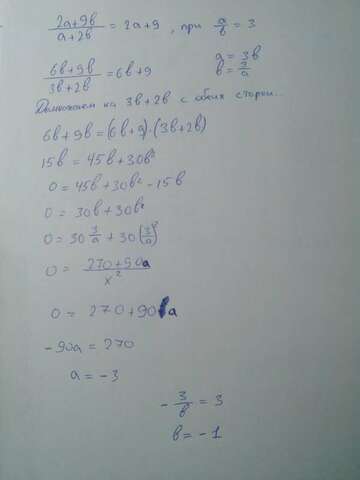 (2a+9b)/(a+2b) = 2a+9, при a/b = 3
(6b+9b)/(3b+2b) = 6b+9
a = 3b
b = 3/a
Домножаем на 3b+2b с обеих сторон...
6b+9b = (6b+9)·(3b+2b)
15b = 45b+30b²
0 = 45b+30b²-15b
0 = 30b+30b²
0 = 30 3/a + 30(3/a)²
0 = (270+90a)/x²
0 = 270+90a
-90a = 270
a = -3
-3/b = 3
b = -1